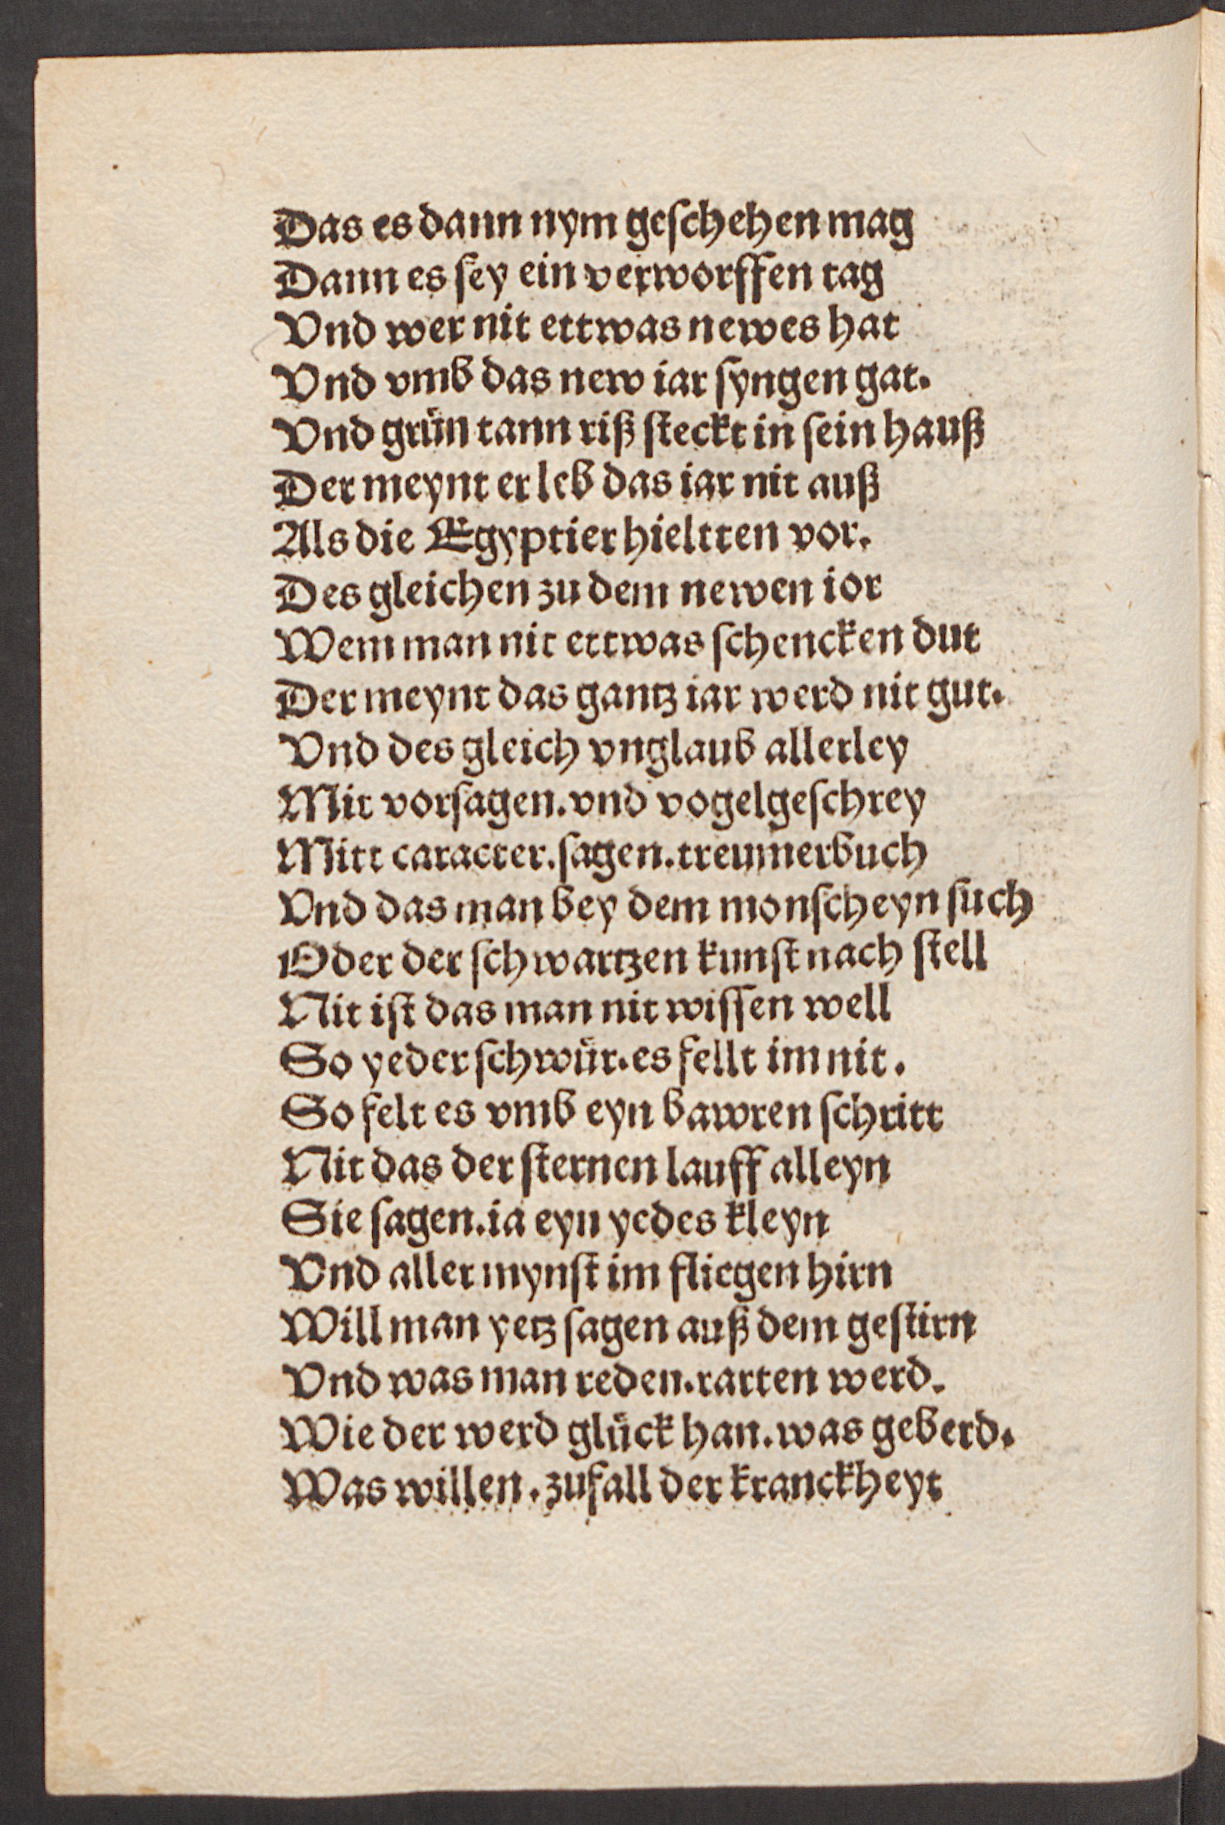 Das es dann nym geschehen mag
Dann es sey ein verworffen tag
Vnd wer nit ettwas newes hat
Vnd vmb das new iar syngen gat.
Vnd grün tann riß steckt in sein hauß
Der meynt er leb das iar nit auß
Als die Egyptier hieltten vor.
Des gleichen zu dem newen ior
Wem man nit ettwas schencken dut
Der meynt das gantz iar werd nit gut.
Vnd des gleich vnglaub allerley
Mit vorsagen. vnd vogelgeschrey
Mitt caracter. sagen. treumerbuch
Vnd das man bey dem monscheyn such
Oder der schwartzen kunst nach stell
Nit ist das man nit wissen well
So yeder schwür. es fellt im nit.
So felt es vmb eyn bawren schritt
Nit das der sternen lauff alleyn
Sie sagen. ia eyn yedes kleyn
Vnd aller mynst im fliegen hirn
Will man yetz sagen auß dem gestirn
Vnd was man reden. ratten werd.
Wie der werd glück han. was geberd.
Was willen. zufall der kranckheyt